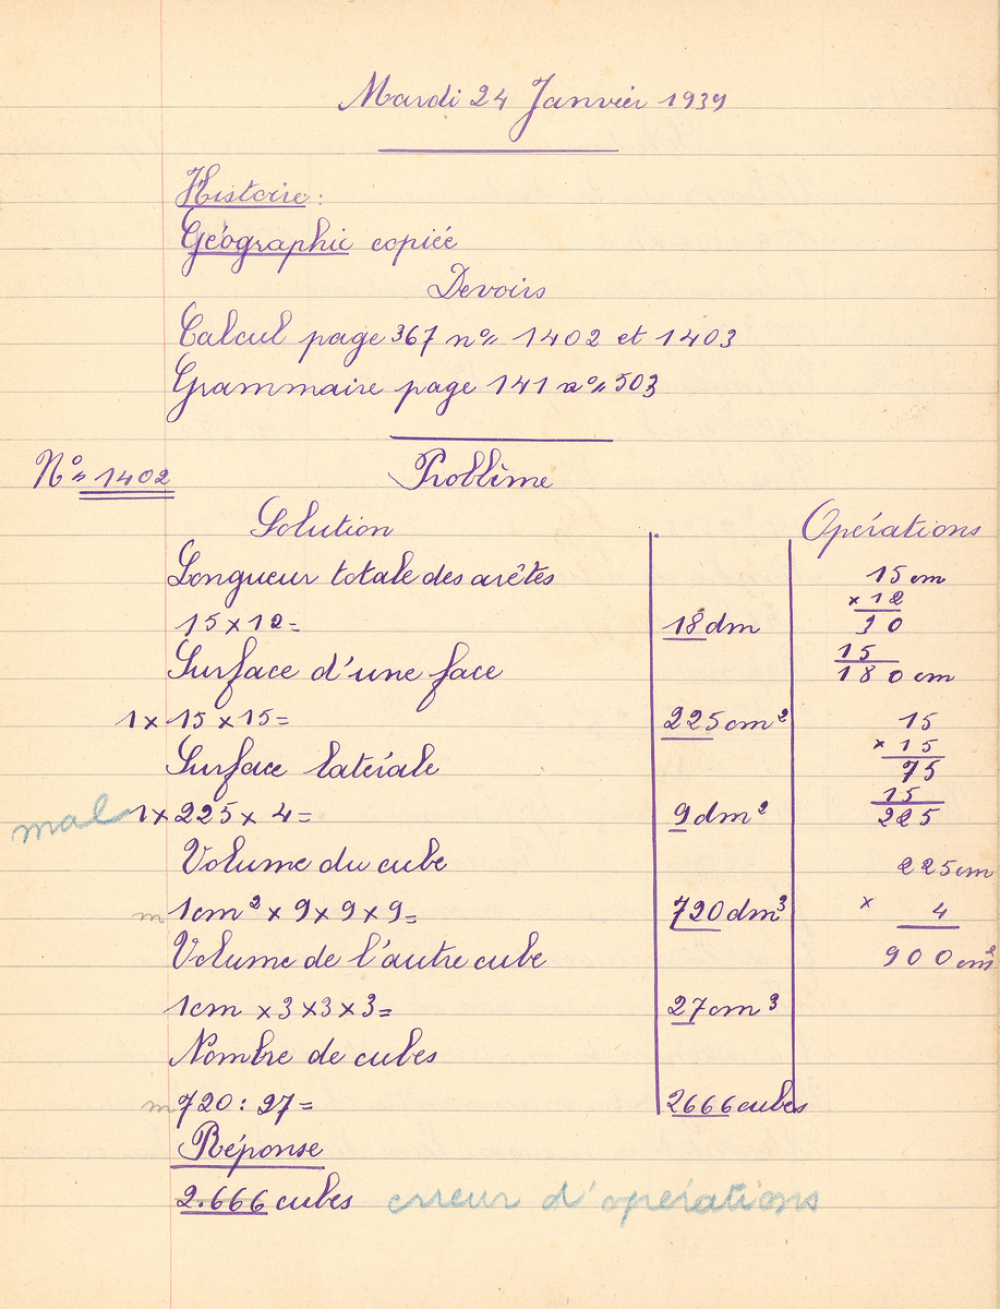 Mardi 24 Janvier 1939
Histoire :
Géographie copiée
Devoirs
Calcul page 367 nos 1402 et 1403
Grammaire page 141 nos 503
No 1402 Problème
Solution Opérations
Longueur totale des arêtes 15 cm
× 12
15 × 12 = 18 dm 30
15
Surface d'une face 180 cm
1 × 15 × 15 = 225 cm² 15
× 15
Surface latérale 75
15
mal 1 × 225 × 4 = 9 dm² 225
Volume du cube 225 cm
m 1cm² × 9 × 9 × 9 = 720 dm³ × 4
Volume de l'autre cube 900 cm²
1cm × 3 × 3 × 3 = 27 cm³
Nombre de cubes
m 720 : 27 = 2666 cubes
Réponse
2.666 cubes erreur d'opérations